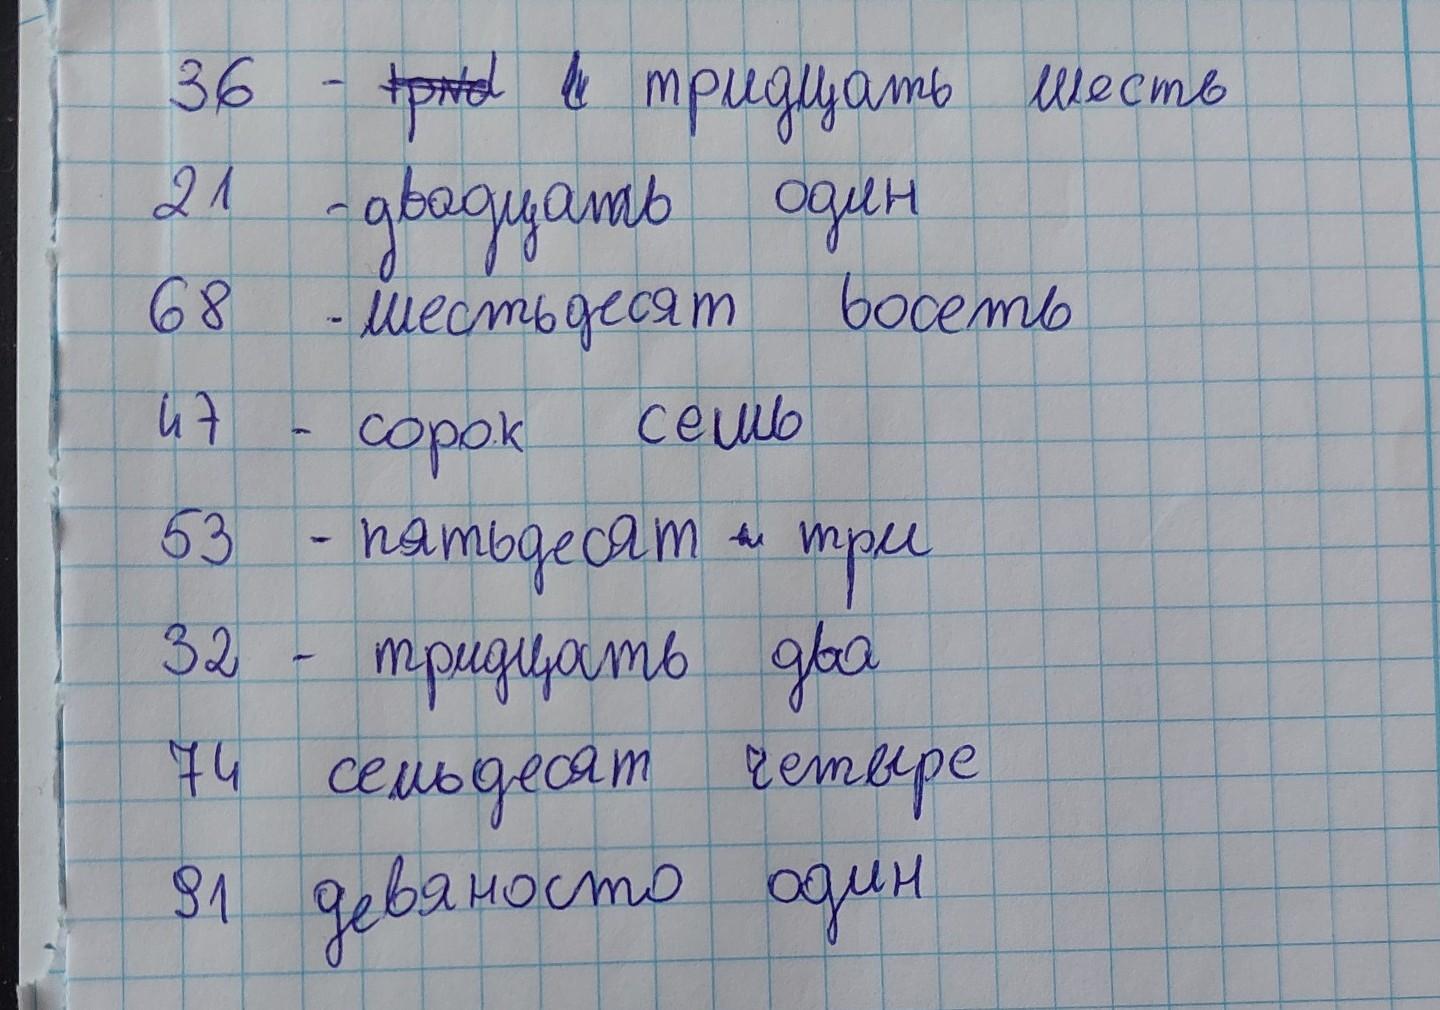 36 - тридцать шесть
21 - двадцать один
68 - шестьдесят восеть
47 - сорок семь
53 - пятьдесят три
32 - тридцать два
74 семьдесят четыре
91 девяносто один